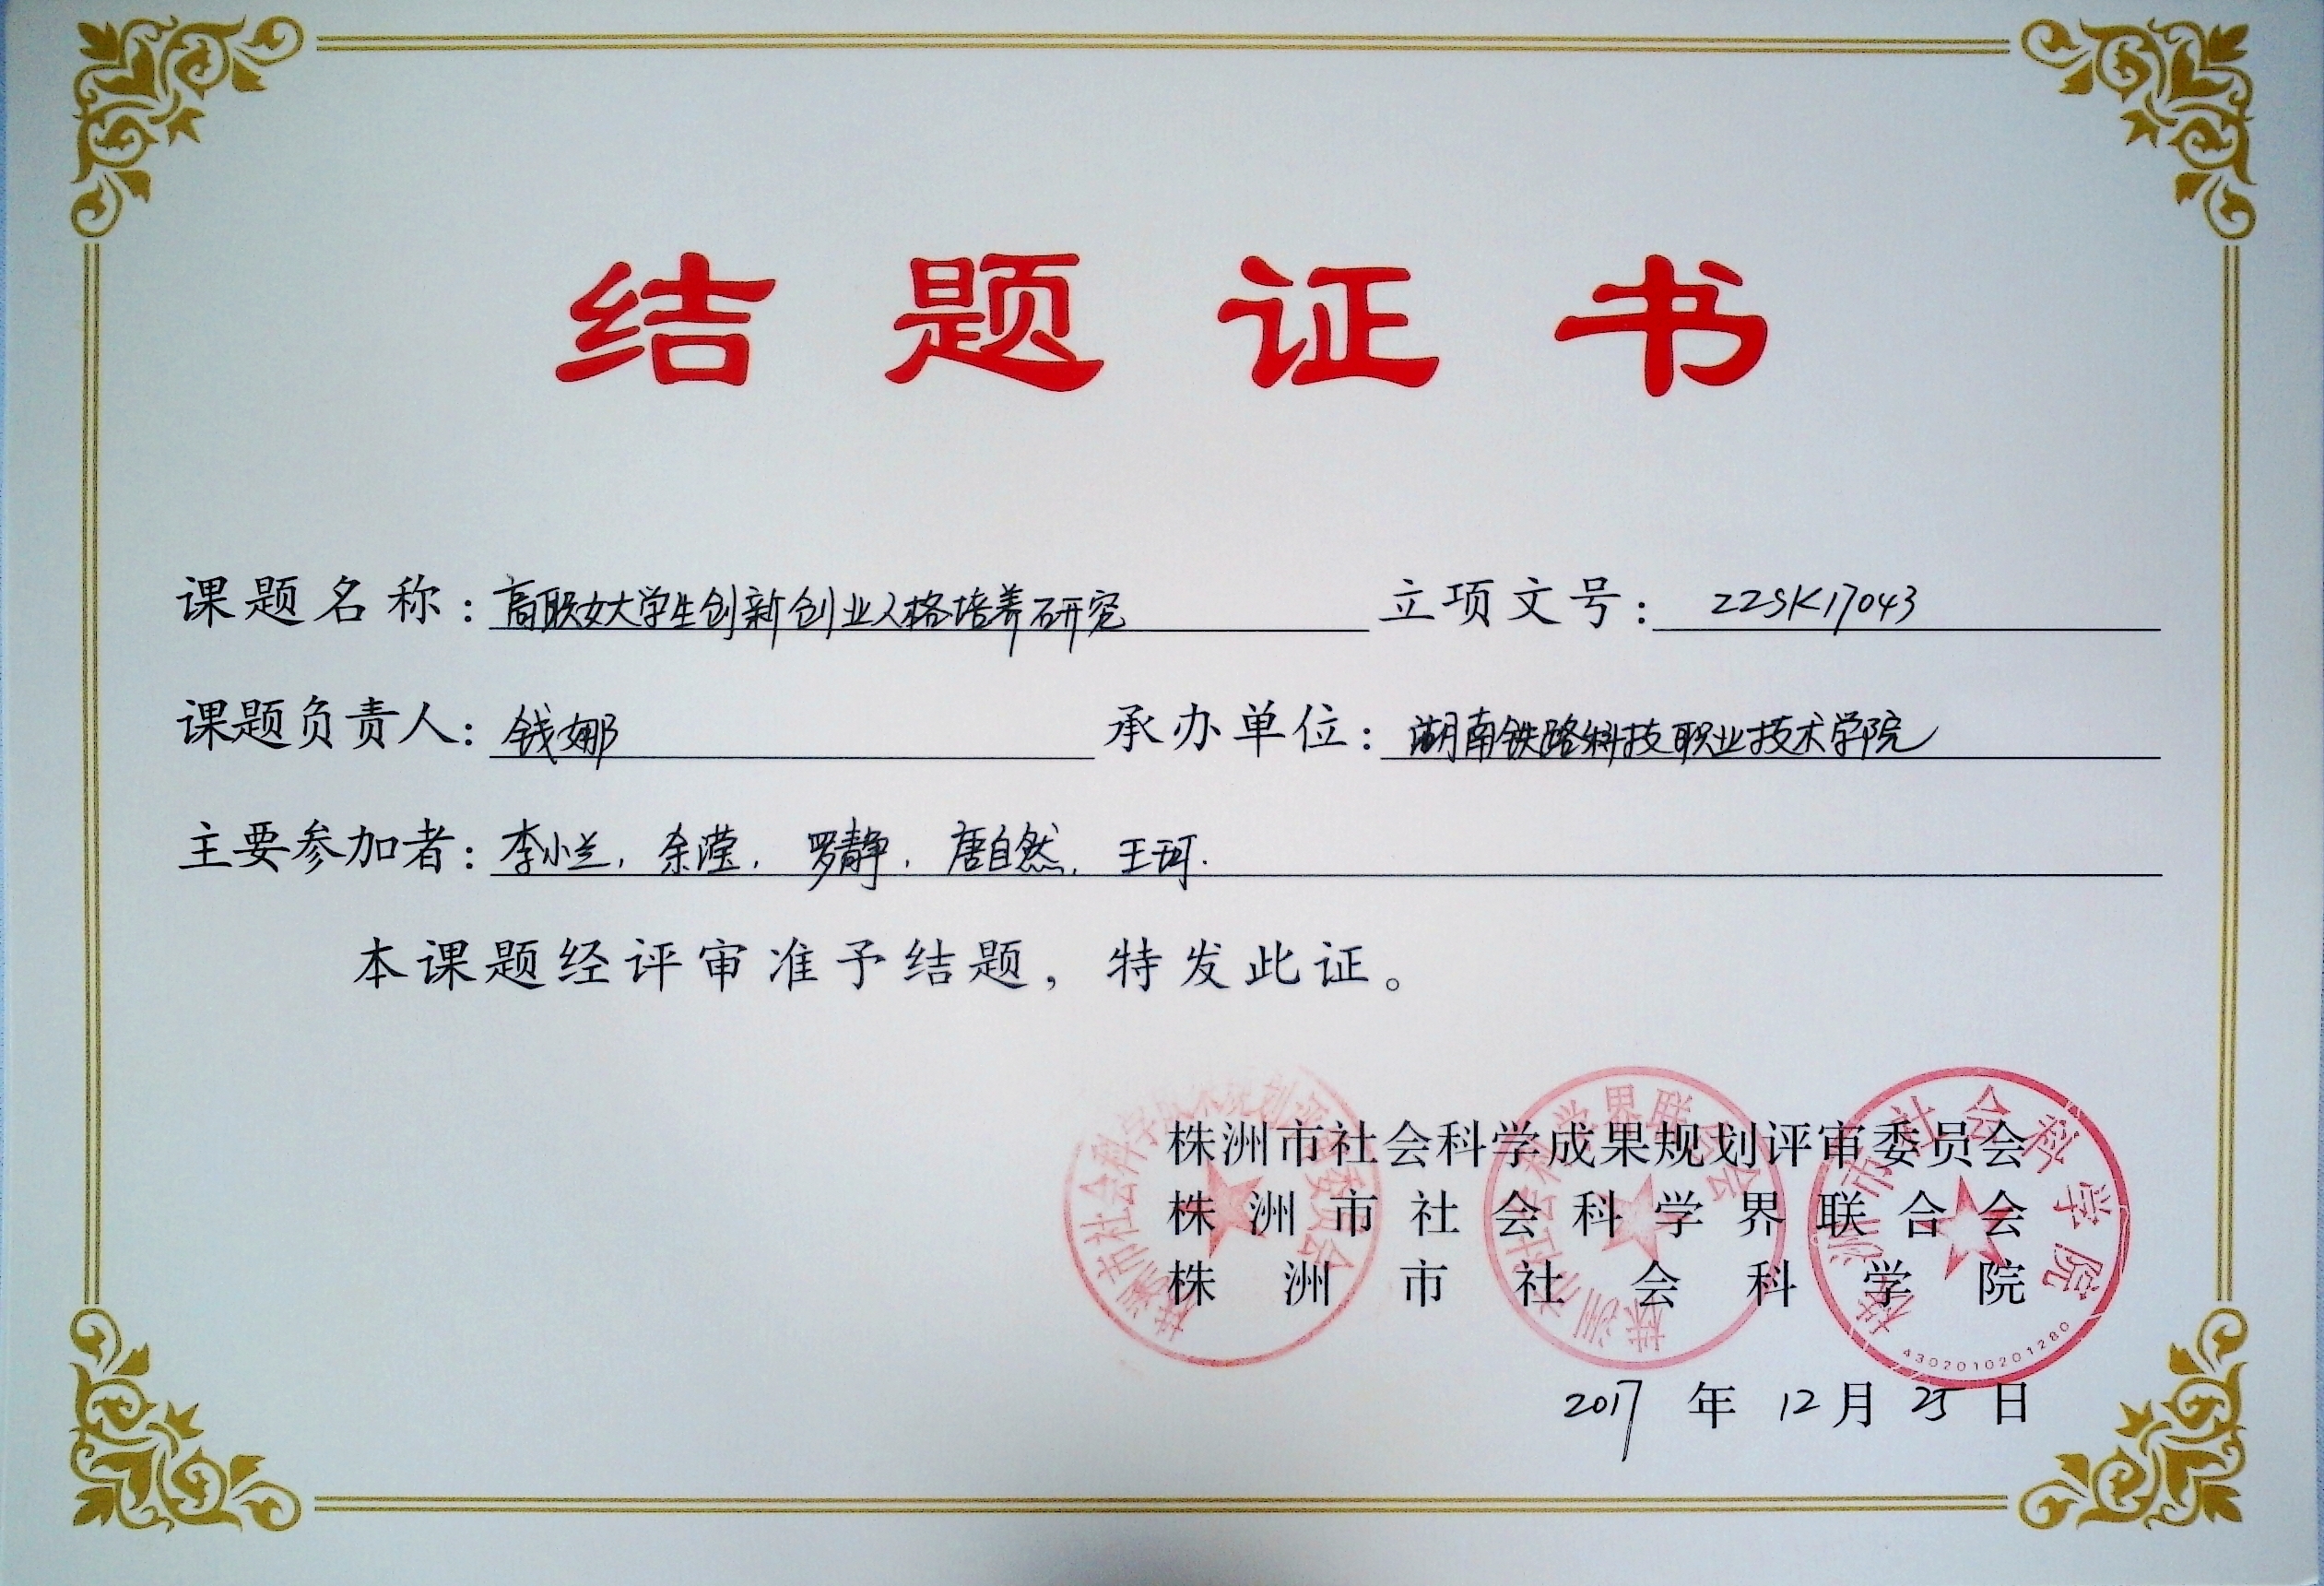 结题证书
课题名称：高职女大学生创新创业人格培养研究 立项文号：ZZSK17043
课题负责人：钱娜 承办单位：湖南铁路科技职业技术学院
主要参加者：李小兰，余滢，罗静，唐自然，王珂.
本课题经评审准予结题，特发此证。
株洲市社会科学成果规划评审委员会
株洲市社会科学界联合会
株洲市社会科学院
2017年12月25日
株洲市社会科学成果规划评审委员会
株洲市社会科学界联合会
株洲市社会科学院
4302010201280